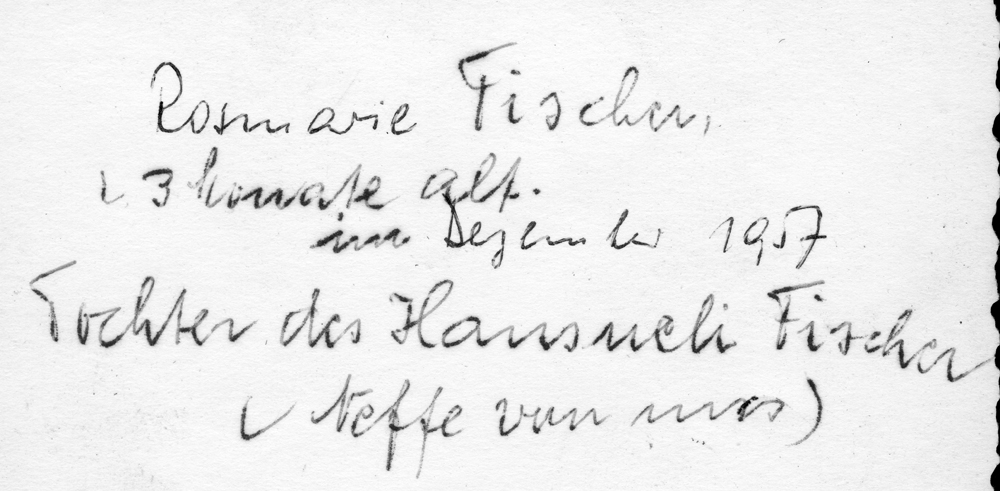 Rosmarie Fischer,
3 Monate alt.
im Dezember 1957
Tochter des Hansueli Fischer
(Neffe von uns)